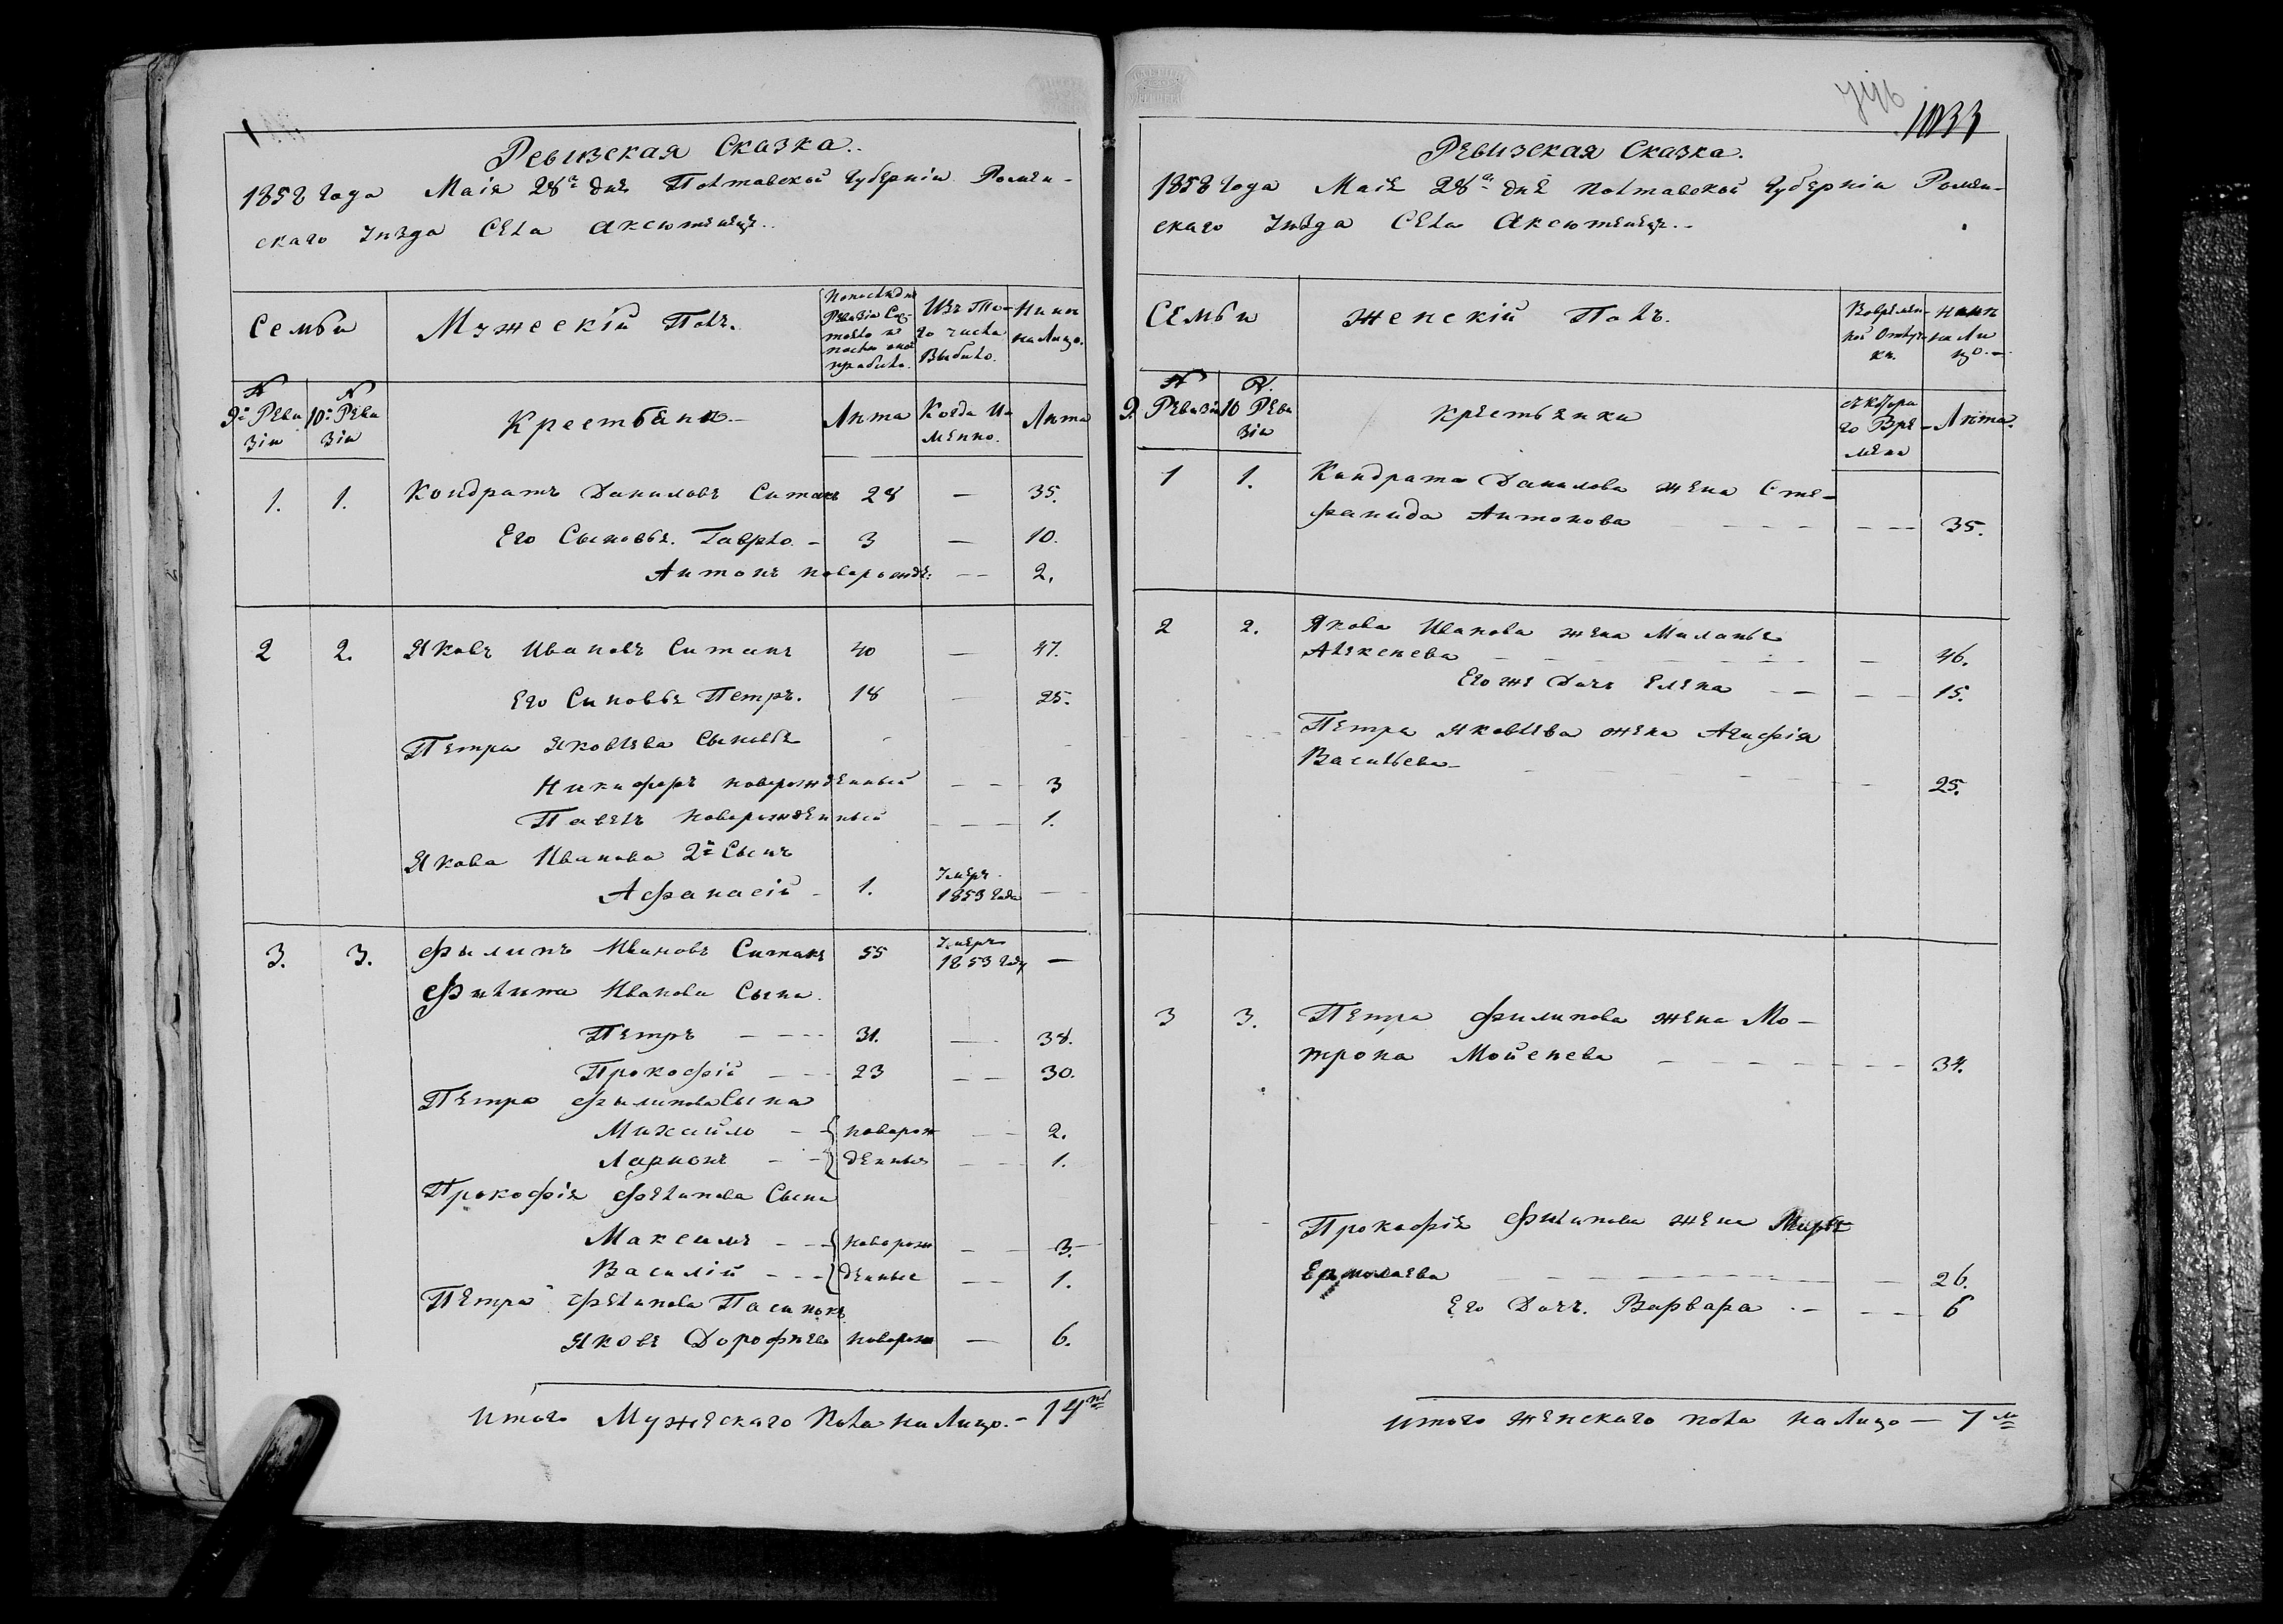 Ревизская Сказка.
1858 года Маія 28го дня Полтавской Губерніи Ромен-
скаго Уѣзда Села Аксютенецъ..
Семьи
Мужескій Полъ.
По последней Ревизіи Состояло и после оной прибыло.
Изъ То-
го числа
Выбыло.
Нынѣ
на Лицо.
№ 9й Ревизіи
№ 10й Ревизіи
Крестьяне
Лѣта
Когда Именно.
Лѣта
1. 1. Кондратъ Даниловъ Ситакъ 28 — 35.
Его Сыновья. Гаврло. — 3 — 10.
Антонъ новорожд: — — 2.
2 2. Яковъ Ивановъ Ситакъ 40 — 47.
Его Сыновья Петръ. 18 — 25.
Петра Яковлева Сыновья
Никифоръ новорожденный — — 3
Павелъ Новорожденный — — — 1.
Якова Иванова 2й Сынъ
Афанасій — 1. Умеръ 1853 года —
3. 3. Филипъ Ивановъ Ситакъ 55 Умеръ 1853 году —
Филипа Иванова Сыны
Петръ — — — 31. — 38.
Прокофій — — 23 — — 30.
Петра Филипова Сыны
Михайло — — { новорож — — 2.
Ларионъ — — { денные — — 1.
Прокофія Филипова Сыны
Максимъ — — { новорож — — 3.
Василій — — — { денные — — 1.
Петра Филипова Пасинокъ
Яковъ Дорофѣевъ новорож — 6.
Итого Мужескаго Пола на Лицо. — 14ть
1033
Ревизская Сказка.
1858 года Маія 28го дня Полтавской Губерніи Ромен-
скаго Уѣзда Села Аксютенецъ..
Семьи
Женскій Полъ.
Во времен-
ной Отлуч-
кѣ.
Нынѣ
на Ли
цо. —
№ 9. Ревизіи
№ 10 Ревизіи
Крестьянки
съ котора
го Вре-
мени
Лѣта.
1 1. Кондрата Данилова жена Сте-
фанида Антонова — — — — — — 35.
2 2. Якова Иванова жена Миланья
Алексеева — — — — — — 46.
Его же Дочь Елена — — — — 15.
Петра Яковлева жена Агафія
Васильева — — — — — 25.
3 3. Петра Филипова жена Мо-
трона Мойсеева — — — — — — — 34.
Прокофія Филипова жена Марья
Ермолаева — — — — — — 26.
Его Дочь. Варвара — — — 6
Итого Женскаго пола на Лицо — 7мь